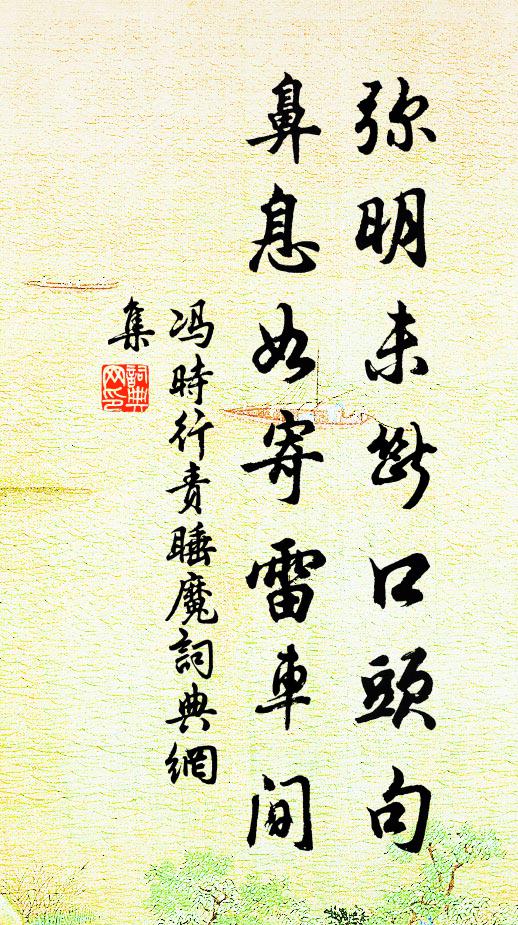 弥明未断口頭句
鼻息如寄雷車間
冯時行责睡魔詞典網
集
詞典
网印